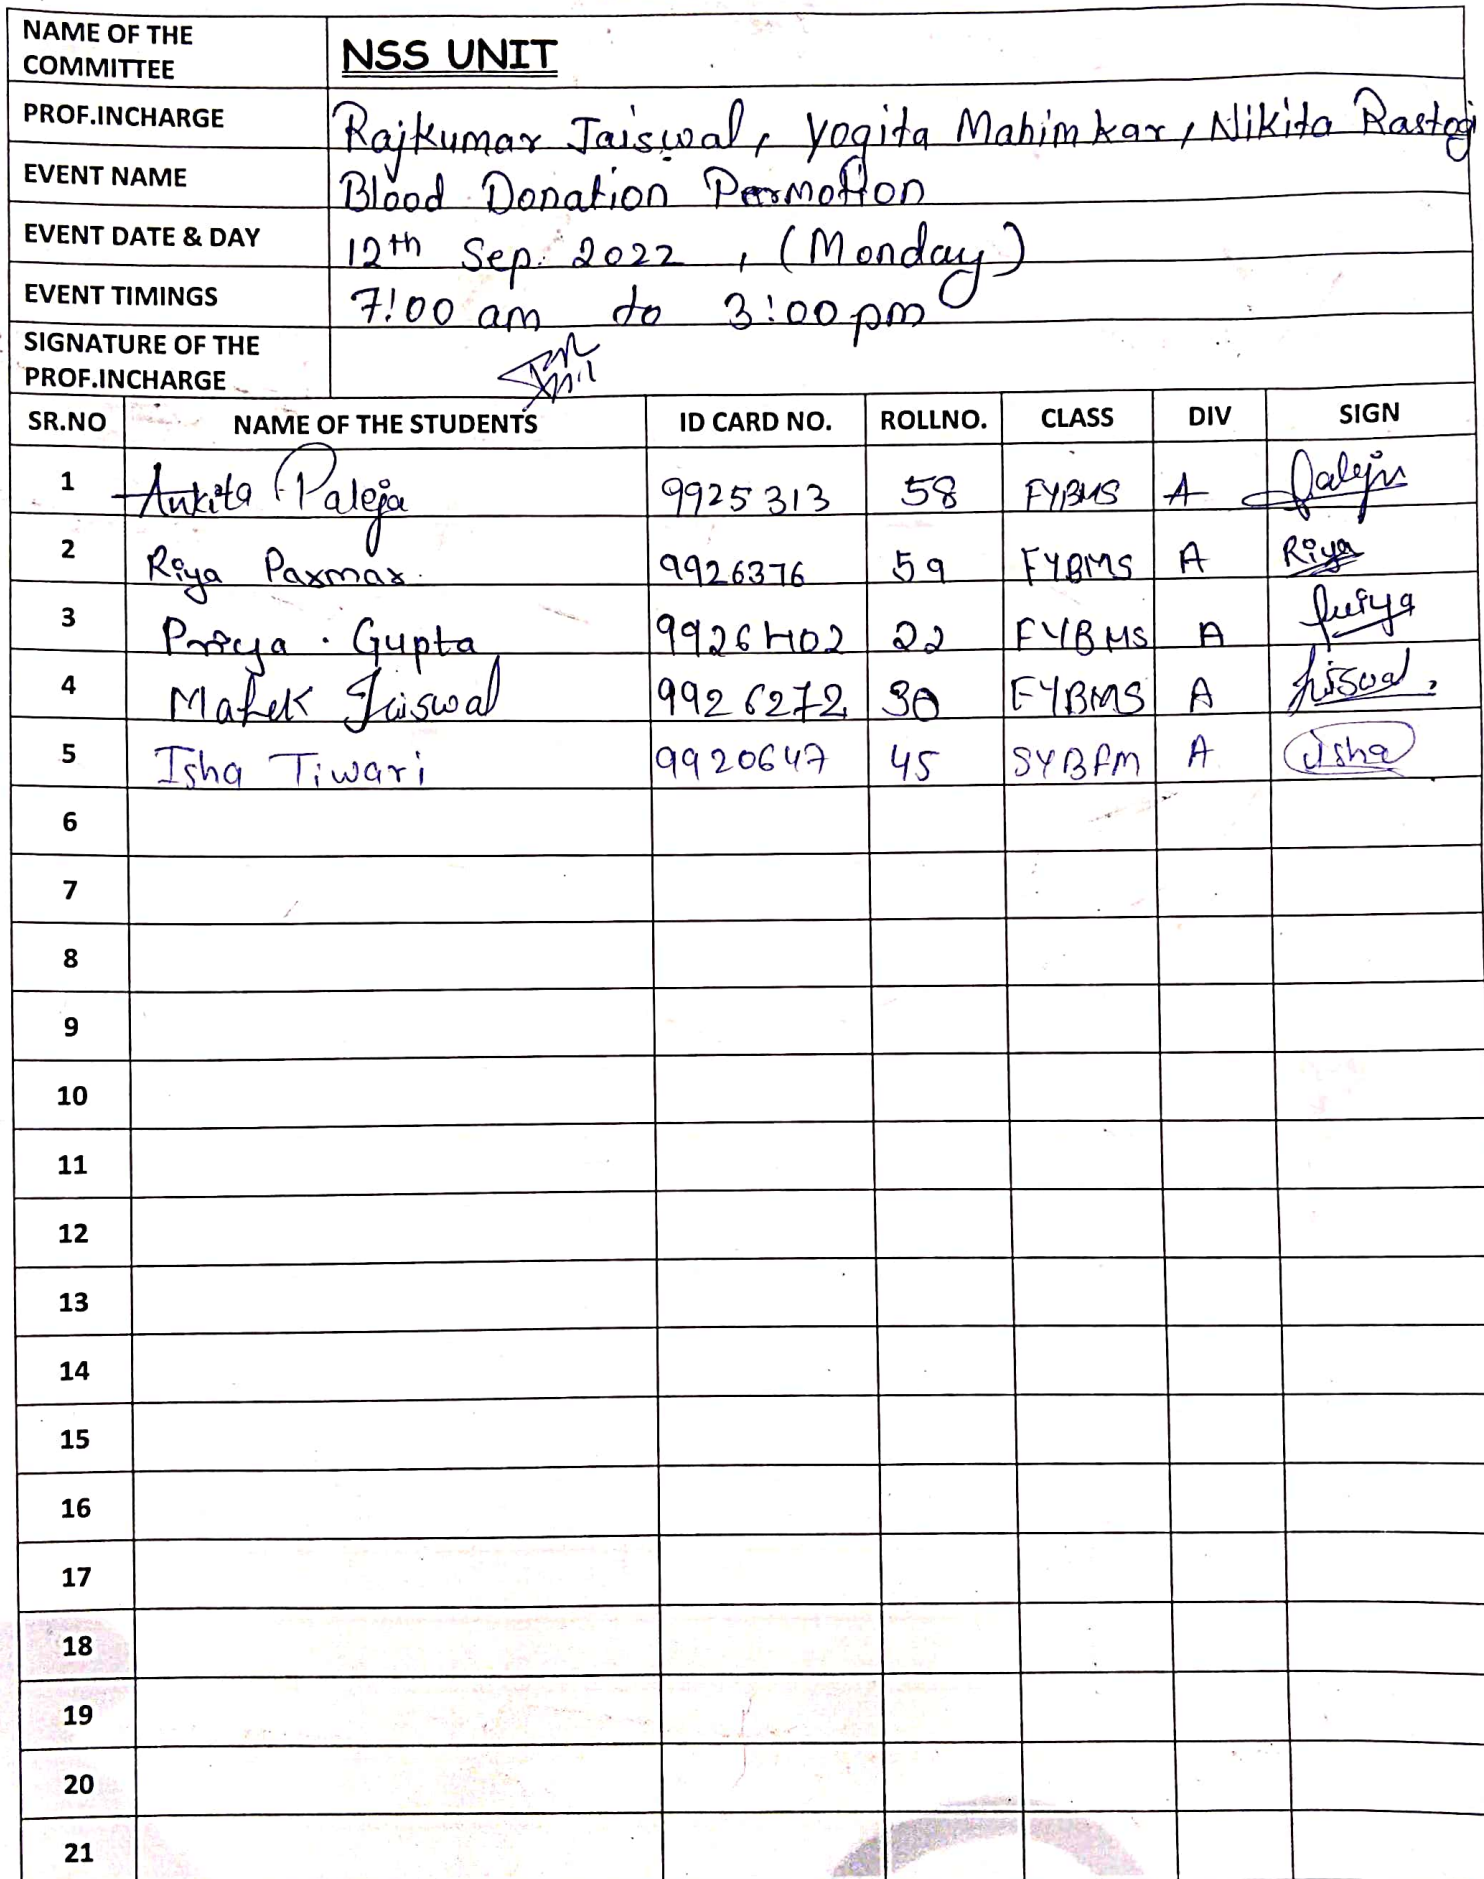 NAME OF THE COMMITTEE NSS UNIT
PROF.INCHARGE Rajkumar Jaiswal, Yogita Mahimkar, Nikita Rastogi
EVENT NAME Blood Donation Permotion
EVENT DATE & DAY 12th Sep. 2022, (Monday)
EVENT TIMINGS 7:00 am to 3:00 pm
SIGNATURE OF THE PROF.INCHARGE
SR.NO NAME OF THE STUDENTS ID CARD NO. ROLLNO. CLASS DIV SIGN
1 Ankita Paleja 9925313 58 FYBMS A Paleja
2 Riya Parmar. 9926376 59 FYBMS A Riya
3 Priya . Gupta 9926402 22 FYBMS A Priya
4 Mahek Jaiswal 9926272 30 FYBMS A Jaiswal
5 Isha Tiwari 9920647 45 SYBFM A Isha
6
7
8
9
10
11
12
13
14
15
16
17
18
19
20
21